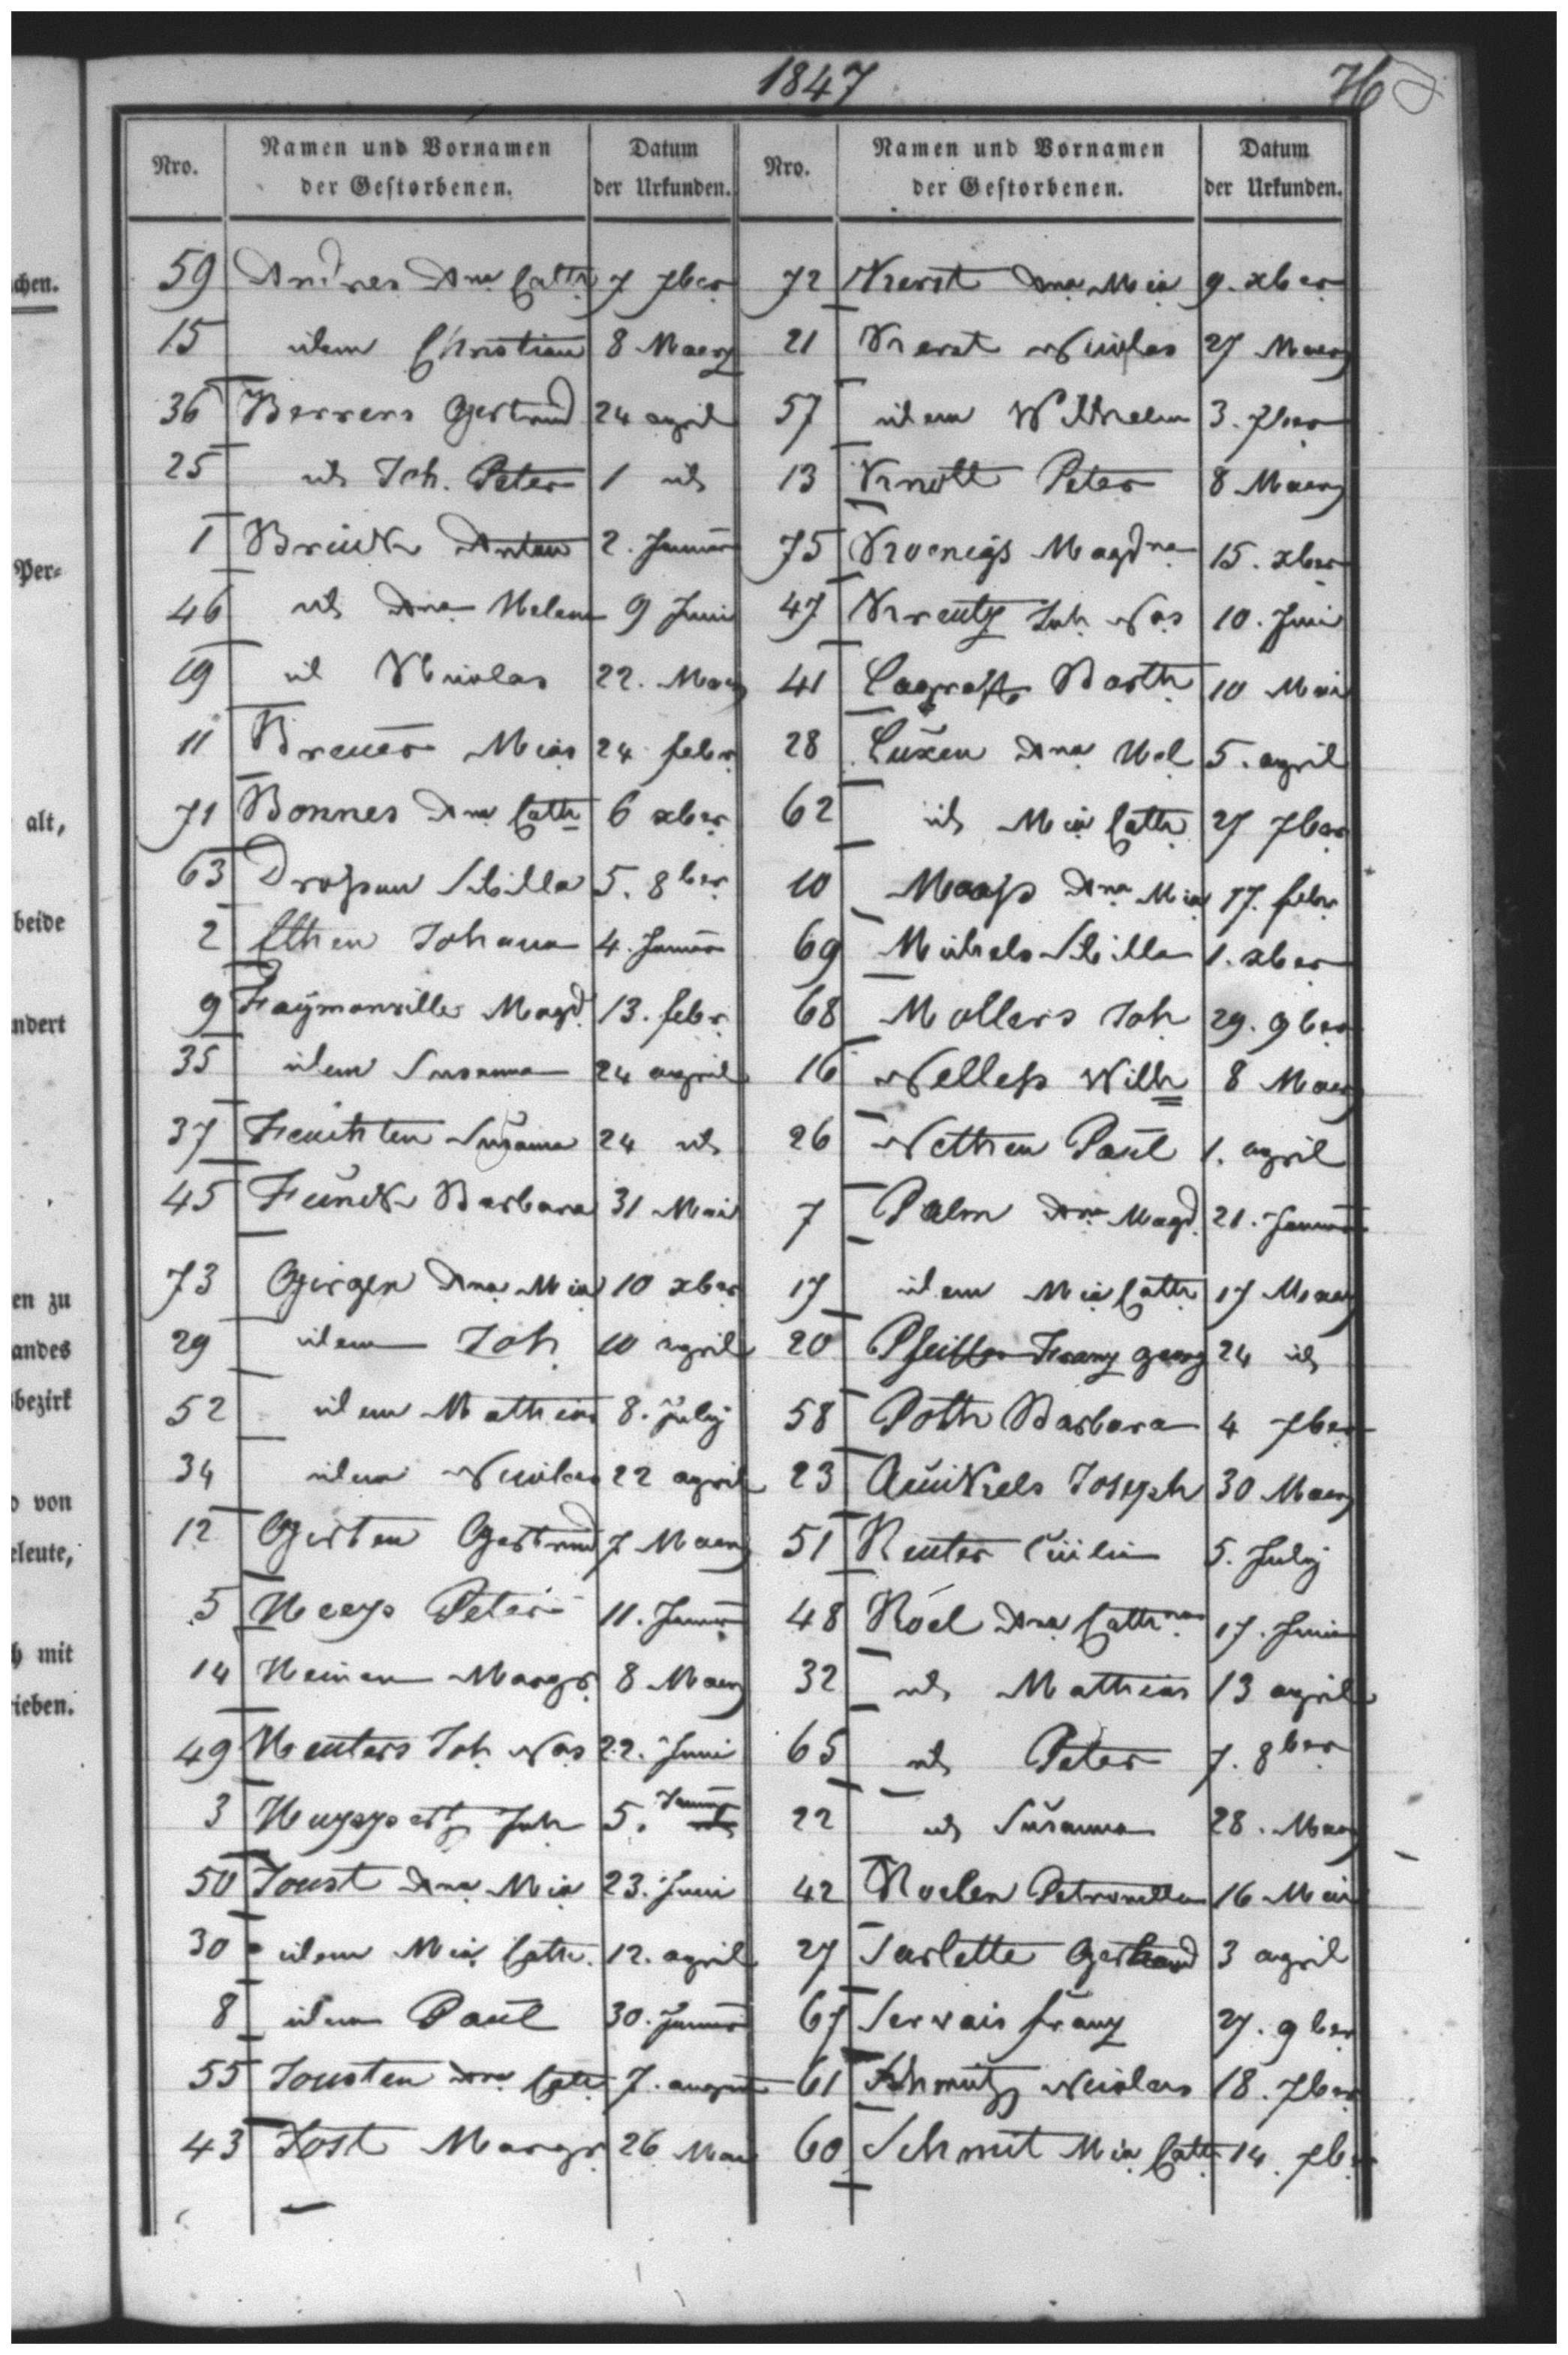 1847
76
Nro.
Namen und Vornamen
der Gestorbenen.
Datum
der Urkunden.
59 Andres Ana Cath 7 7ber
15 idem Christian 8 Maerz
36 Berrens Gertrud 24 april
25 id Joh. Peter 1 id
1 Brück Anton 2. Januar
46 id Ana Helena 9 Juni
19 id Nicolas 22. Maerz
11 Breuer Mias 24 febr
71 Bonnes Ana Cath 6 xber
63 Drossun Sibilla 5. 8ber
2 Ethen Johann 4. Januar
9 Faymonville Magd 13. febr
35 idem Susanna 24 april
37 Feuchten Susanna 24 id
45 Funck Barbara 31 Mai
73 Girgen Ana Mia 10 xber
29 idem Joh 10 april
52 idem Mathias 8. July
34 idem Nicolas 22 april
12 Girten Gertrud 7 Maerz
5 Heeys Peter 11. Januar
14 Heinen Margr 8 Maerz
49 Heuters Joh Nas 22. Juni
3 Huppertz Joh 5. Januar
50 Joust Ana Mia 23. Juni
30 idem Mia Cath. 12. april
8 idem Paul 30. Januar
55 Jousten Ana Cath 7. august
43 Jost Margr 26 Mai
Nro.
Namen und Vornamen
der Gestorbenen.
Datum
der Urkunden.
72 Kerst Ana Mia 9. xber
21 Kerst Nicolas 27 Maerz
57 idem Wilhelm 3. 7ber
13 Knott Peter 8 Maerz
75 Kroenigs Magdna 15. xber
47 Kreutz Joh Nas 10. Juni
41 Barth 10 Mai
28 Luxen Ana Hel 5. april
62 id Mia Cath 27 7ber
10 Maass Ana Mia 17. febr
69 Michels Sibilla 1. xber
68 Mollers Joh 29. 9ber
16 Welless Wilh 8 Maerz
26 Nethen Paul 1. april
7 Palm Ana Magd 21. Januar
17 idem Mia Cath 17 Maerz
20 Pfeiffer Franz georg 24 id
58 Poth Barbara 4 7ber
23 Quickels Joseph 30 Maerz
51 Reuter Cäcilia 5. July
48 Röel Ana Cathna 17. Juni
32 id Mathias 13 april
65 id Peter 7. 8ber
22 id Susanna 28. Maerz
42 Roelen Petronella 16 Mai
27 Sarlette Gertrud 3 april
67 Servais franz 27. 9ber
61 Schmitz Nicolas 18. 7ber
60 Schmit Mia Cath 14. 7ber
chen.
Per=
alt,
beide
ndert
en zu
andes
bezirk
von
eleute,
mit
rieben.